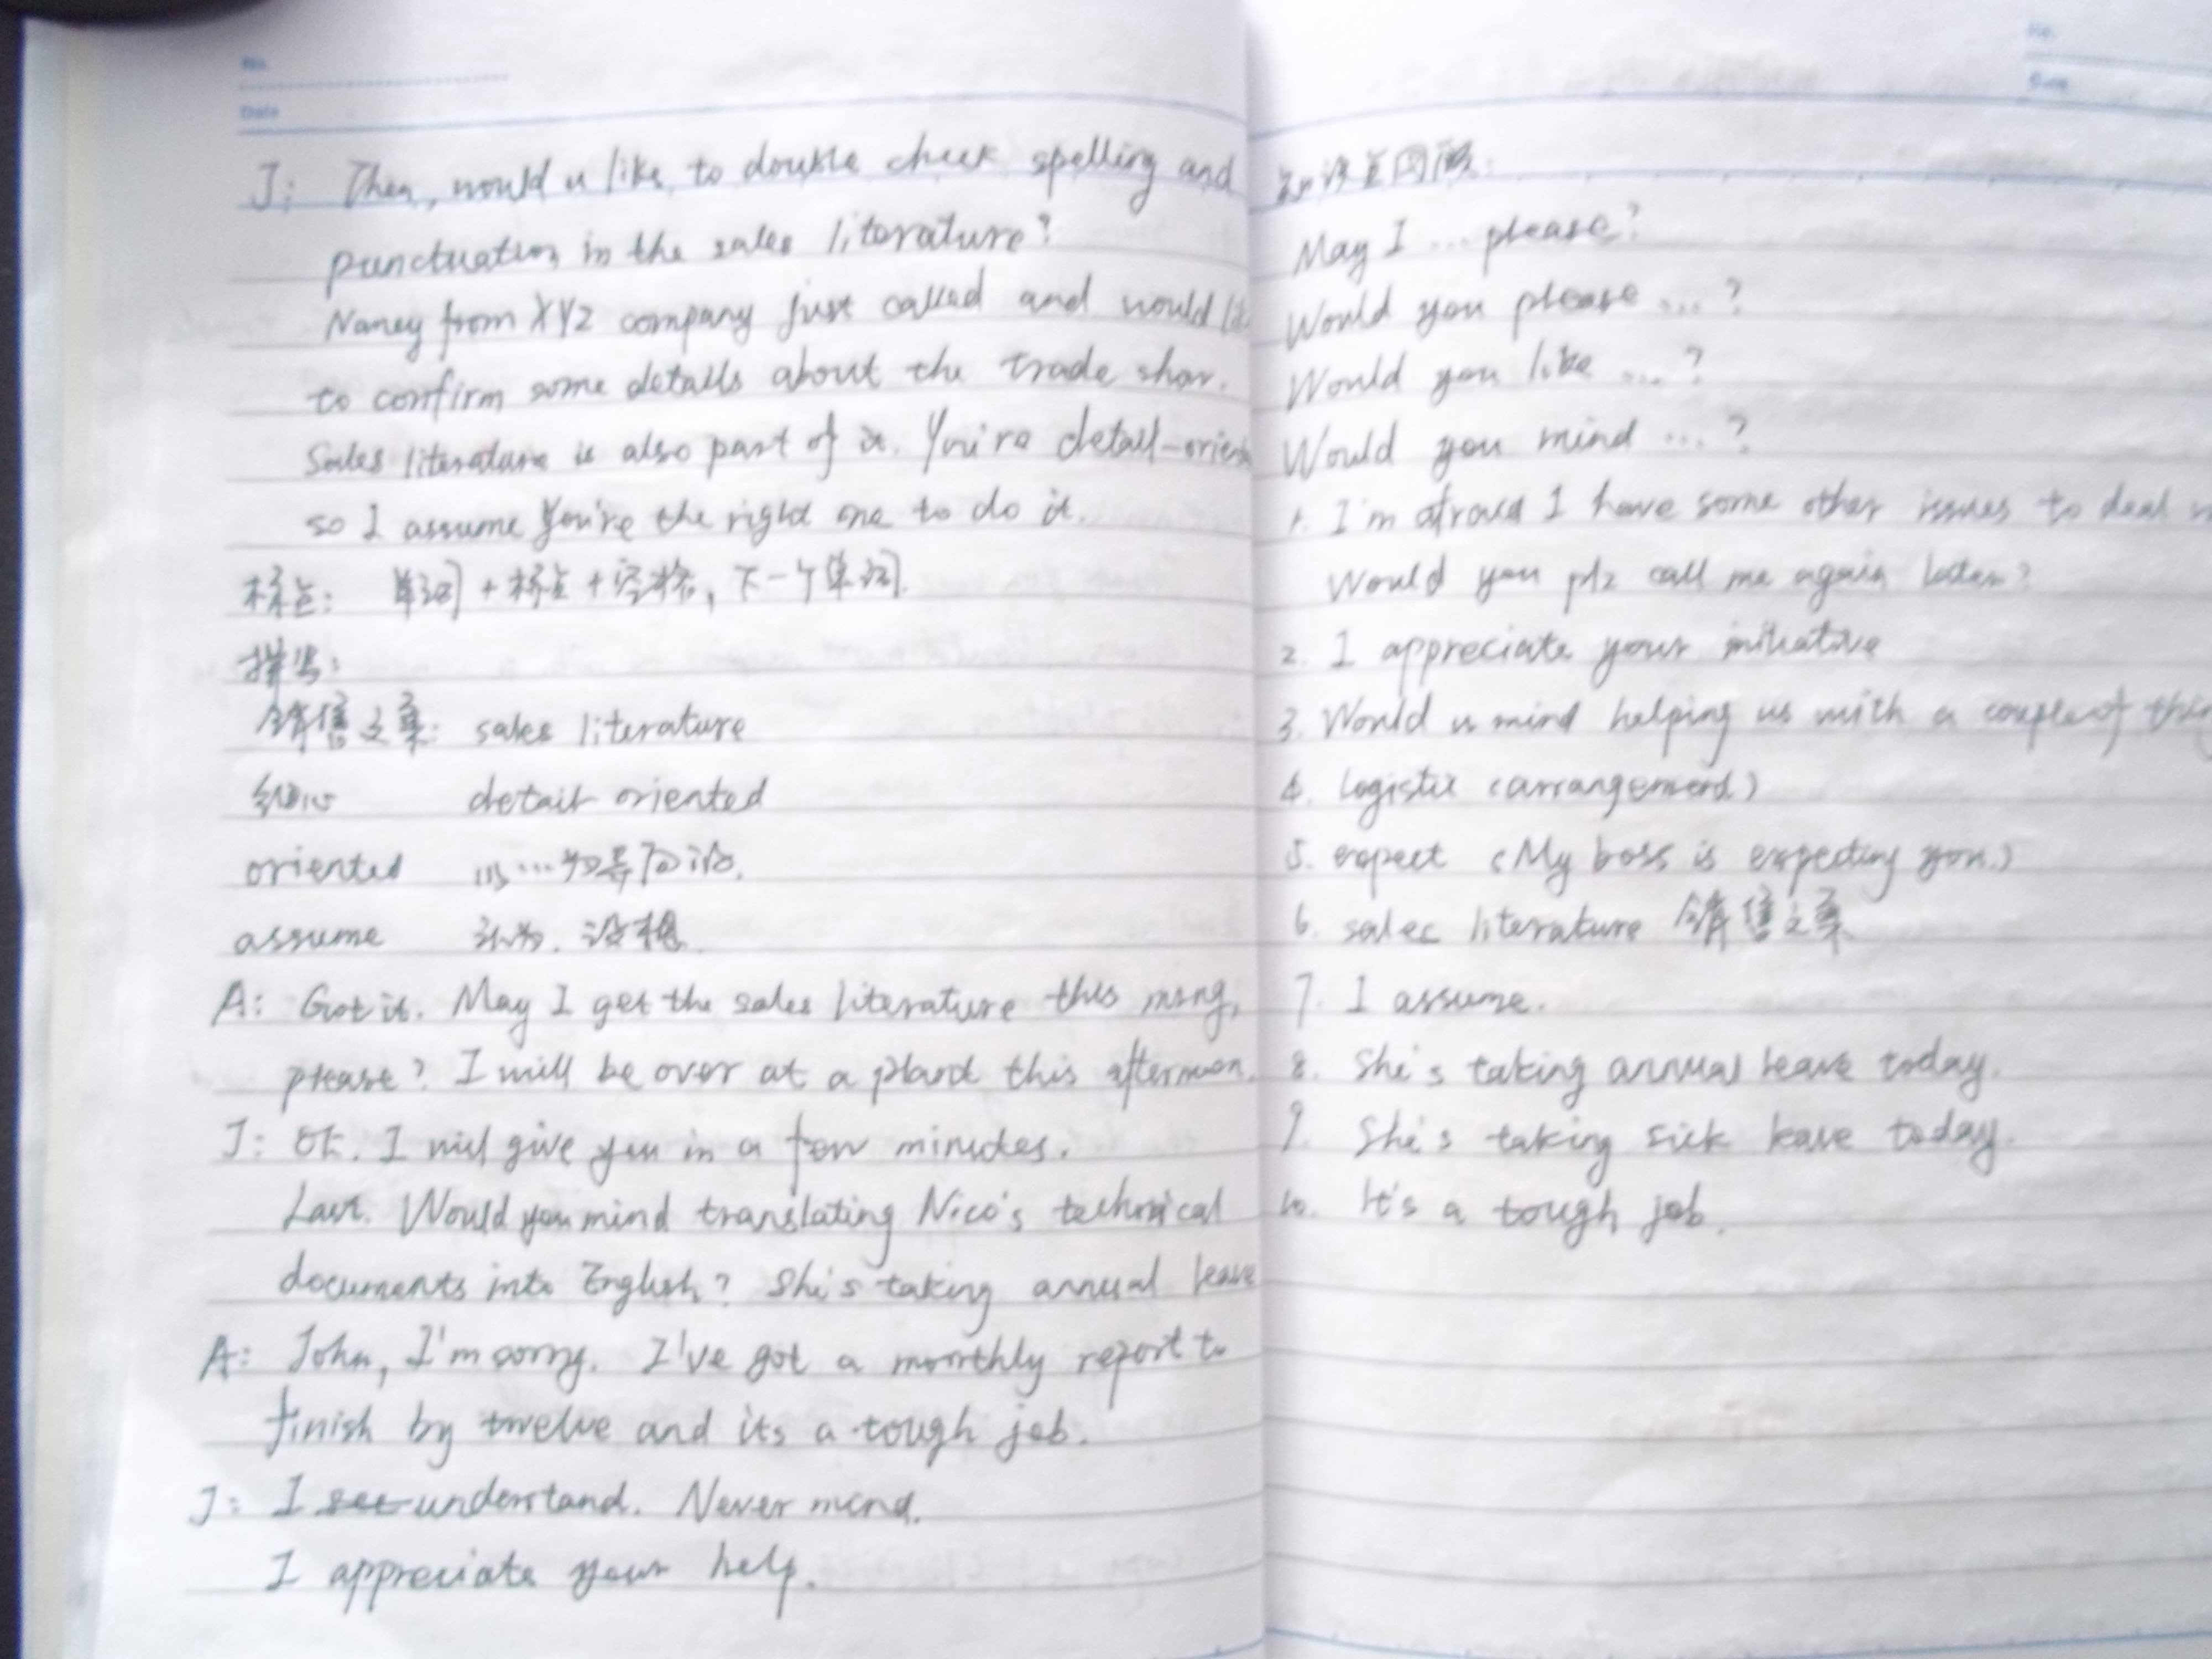 No.
Date
J: Then, would u like to double check spelling and
punctuation in the sales literature?
Nancy from XYZ company just called and would
to confirm some details about the trade show.
Sales literature is also part of it. You're detail-orien
so I assume you're the right one to do it.
标点: 单词+标点+空格, 下一个单词.
拼写:
销售文案: sales literature
细心 detail oriented
oriented 以…为导向的.
assume 认为. 设想.
A: Got it. May I get the sales literature this mrng,
please? I will be over at a plant this afternoon.
J: Ok. I will give you in a few minutes.
Last. Would you mind translating Nico's technical
documents into English? She's taking annual leave
A: John, I'm sorry. I've got a monthly report to
finish by twelve and its a tough job.
J: I see understand. Never mind.
I appreciate your help.
No.
Date
知识点回顾:
May I ... please?
Would you please ... ?
Would you like ... ?
Would you mind ... ?
1. I'm afraid I have some other issues to deal
Would you plz call me again later?
2. I appreciate your initiative
3. Would u mind helping us with a couple of
4. logistix (arrangement)
5. expect (My boss is expecting you.)
6. sales literature 销售文案
7. I assume.
8. She's taking annual leave today.
9. She's taking sick leave today.
10. It's a tough job.